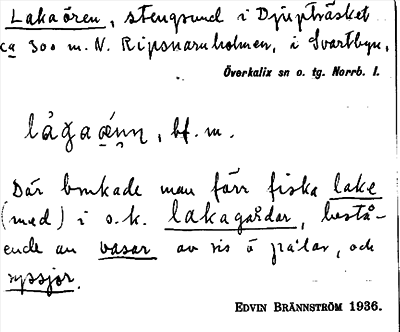 Lakaören, stengrund i Djupträsket
ca 300 m. N. Ripsnarnholmen, i Svartbyn,
Överkalix sn o. tg. Norrb. l.
bf. m.
Där brukade man förr fiska lake
(med) i s.k. lakagårdar, bestå-
ende av vasar av ris å pålar, och
ryssjor.
EDVIN BRÄNNSTRÖM 1936.